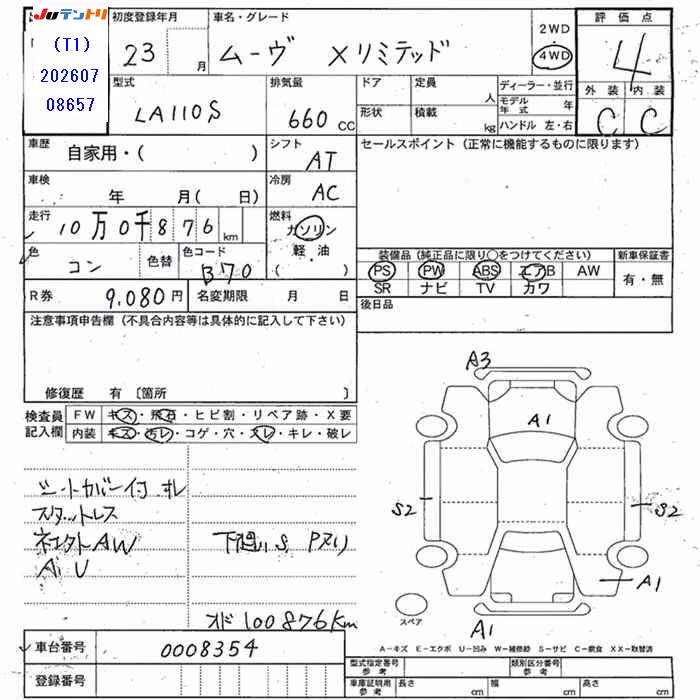 Juテントリ
(T1)
202607
08657
初度登録年月
23 月
車名・グレード
ムーヴ Xリミテッド
2WD
4WD
評価点
4
外装 内装
C C
型式
LA110S
排気量
660 CC
ドア
形状
定員
人
積載
kg
ディーラー・並行
モデル年式 年
ハンドル 左・右
車歴
自家用・( )
シフト
AT
セールスポイント (正常に機能するものに限ります)
車検
年 月( 日)
冷房
AC
走行
10万0千876 km
燃料
ガソリン
軽・油
( )
色
コン
色替
色コード
B70
装備品 (純正品に限り○をつけてください)
PS PW ABS エアB AW
SR ナビ TV カワ
新車保証書
有・無
R券
9,080円
名変期限 月 日
後日品
注意事項申告欄 (不具合内容等は具体的に記入して下さい)
修復歴 有 〔箇所 〕
検査員記入欄
FW キズ・飛石・ヒビ割・リペア跡・X要
内装 キズ・汚レ・コゲ・穴・スレ・キレ・破レ
シートカバー付 オレ
スタットレス
AW
下廻り S
オド100876Km
A3
A1
S2
S2
A1
A1
スペア
A-キズ E-エクボ U-凹み W-補修跡 S-サビ C-腐食 XX-取替済
車台番号
0008354
登録番号
型式指定番号
参考
類別区分番号
参考
車庫証明用
参考
長さ cm 幅 cm 高さ cm